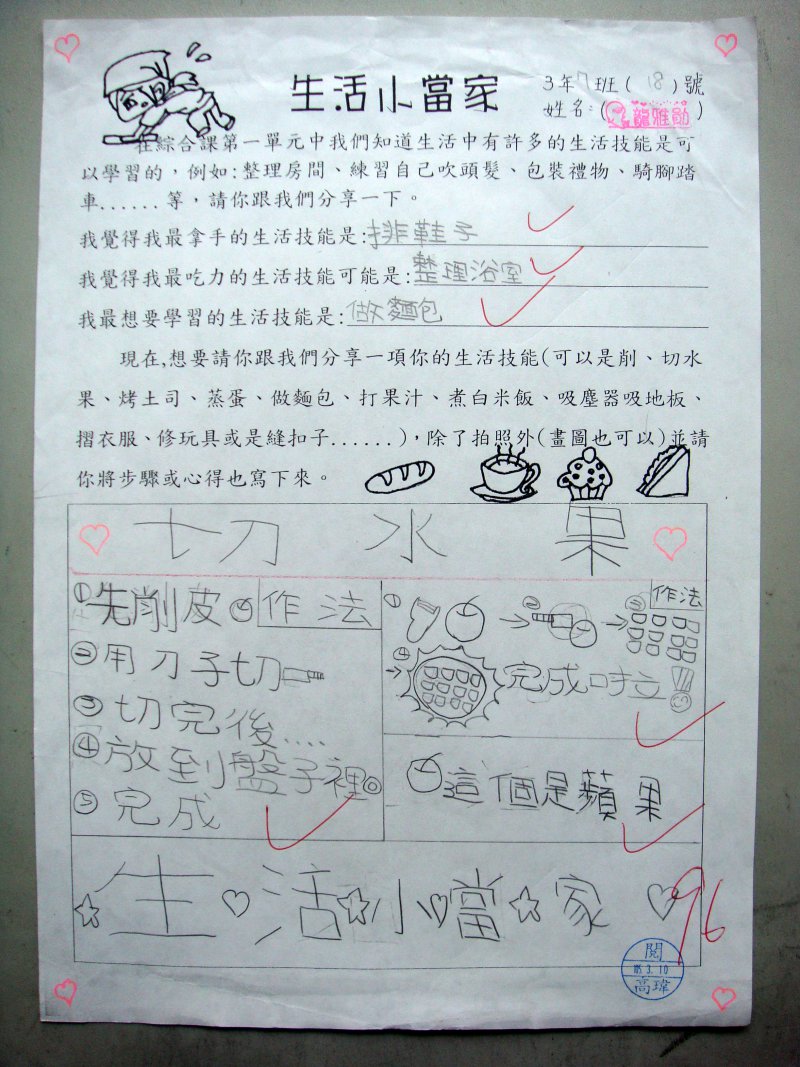 生活小當家
3年7班(18)號
姓名:(龍雅勛)
在綜合課第一單元中我們知道生活中有許多的生活技能是可
以學習的，例如:整理房間、練習自己吹頭髮、包裝禮物、騎腳踏
車......等，請你跟我們分享一下。
我覺得我最拿手的生活技能是:排鞋子
我覺得我最吃力的生活技能可能是:整理浴室
我最想要學習的生活技能是:做麵包
現在,想要請你跟我們分享一項你的生活技能(可以是削、切水
果、烤土司、蒸蛋、做麵包、打果汁、煮白米飯、吸塵器吸地板、
摺衣服、修玩具或是縫扣子......)，除了拍照外(畫圖也可以)並請
你將步驟或心得也寫下來。
切水果
作法
①先削皮
②用刀子切
③切完後....
④放到盤子裡。
⑤完成
作法
① → ② → ③
④ → 完成啦
這個是蘋果
生活小當家
96
閱
3.10
高瑋